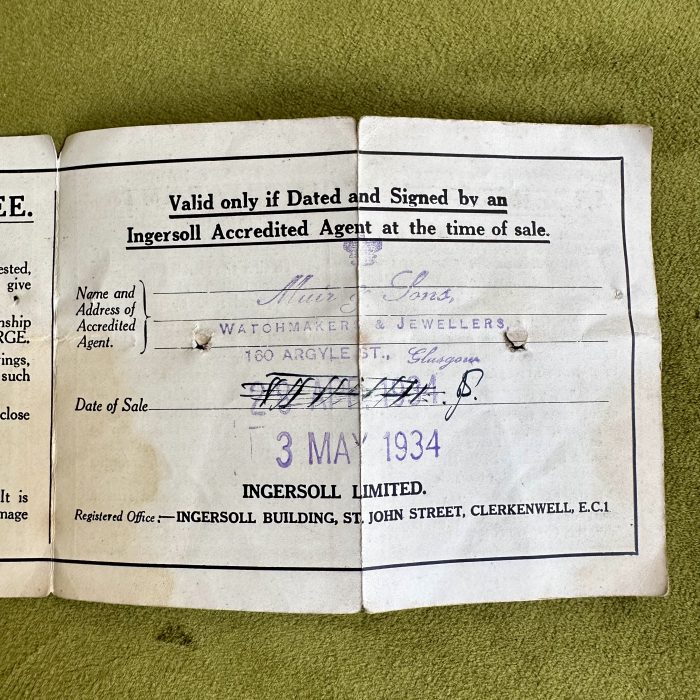 EE.
ested,
give
nship
RGE.
ings,
such
close
It is
mage
Valid only if Dated and Signed by an
Ingersoll Accredited Agent at the time of sale.
Name and
Address of
Accredited
Agent.
Muir & Sons,
WATCHMAKERS & JEWELLERS,
160 ARGYLE ST., Glasgow
Date of Sale
1934
3 MAY 1934
INGERSOLL LIMITED.
Registered Office:—INGERSOLL BUILDING, ST. JOHN STREET, CLERKENWELL, E.C.1